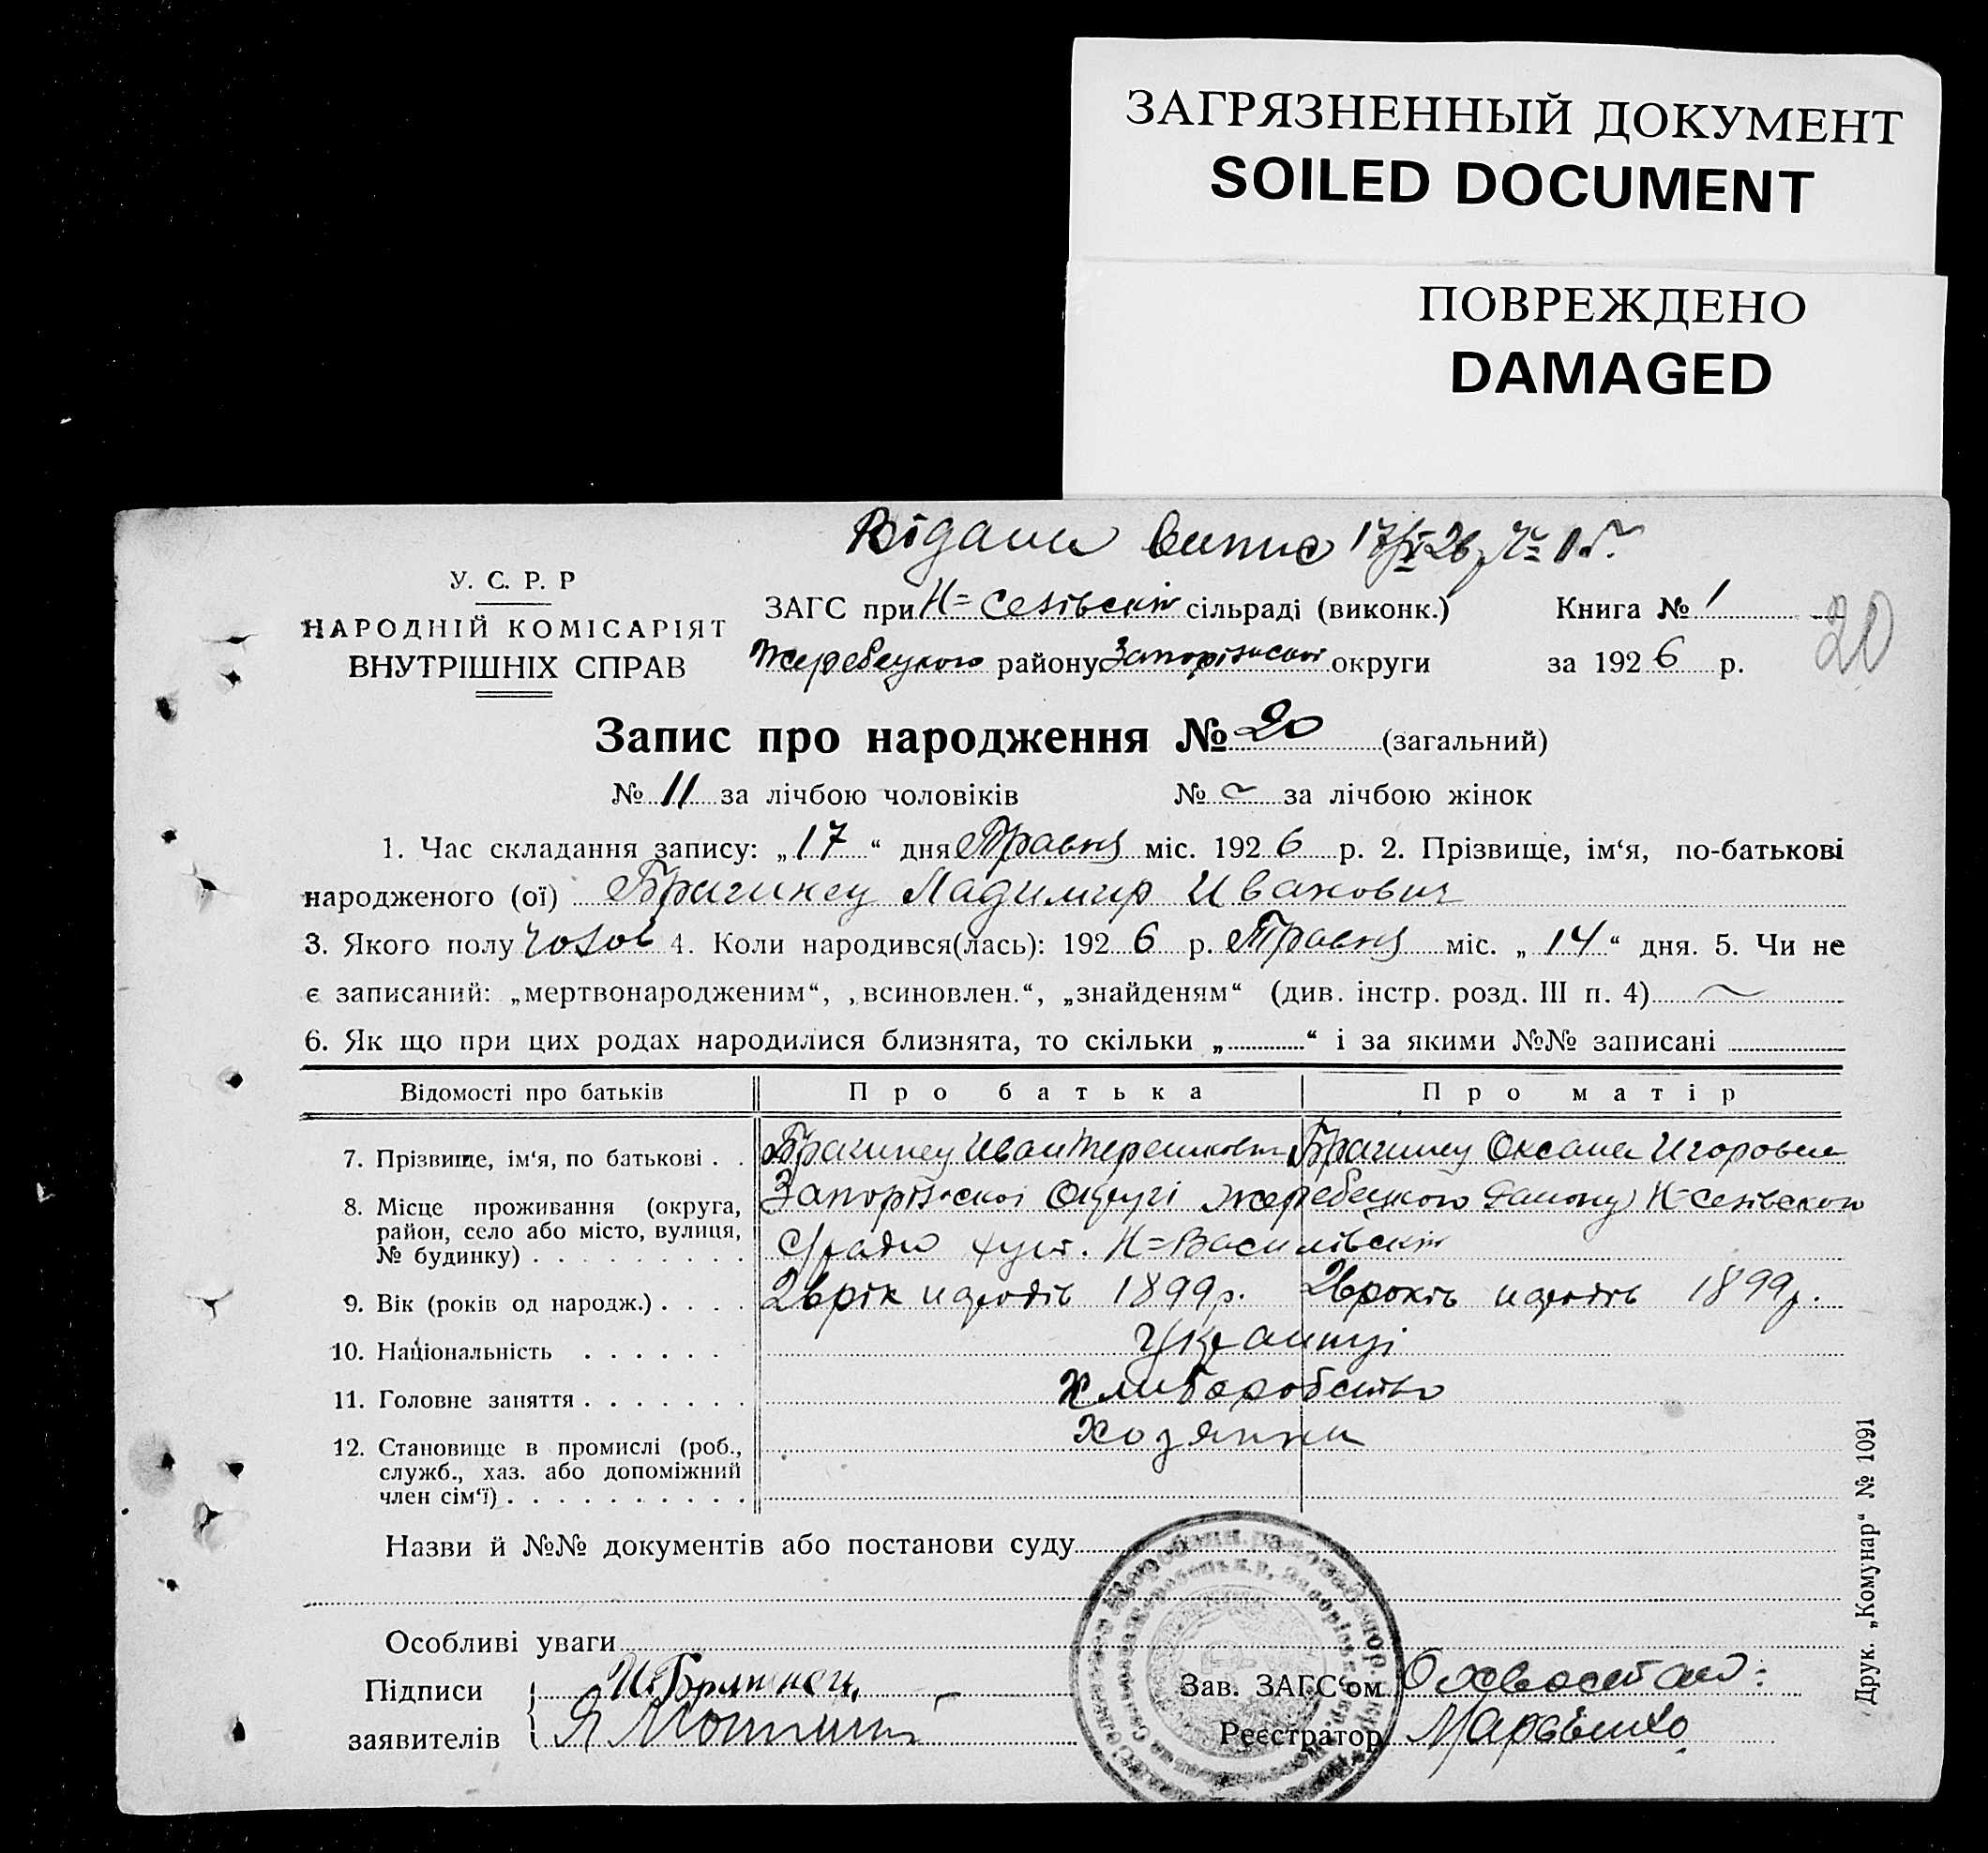 ЗАГРЯЗНЕННЫЙ ДОКУМЕНТ
SOILED DOCUMENT
ПОВРЕЖДЕНО
DAMAGED
Видана випис
У. С. Р. Р
НАРОДНІЙ КОМІСАРІЯТ
ВНУТРІШНІХ СПРАВ
ЗАГС при сільраді (виконк.) Книга № 1
20
Жеребецкого району Запорізскоі округи за 1926 р.
Запис про народження № 20 (загальний)
№ 11 за лічбою чоловіків № ~ за лічбою жінок
1. Час складання запису: „17“ дня Травня міс. 1926 р. 2. Прізвище, ім‘я, по-батькові
народженого (ої) Брагинец Ладимир Иванович
3. Якого полу чолов 4. Коли народився(лась): 1926 р. Травня міс. „14“ дня. 5. Чи не
є записаний: „мертвонародженим“, „всиновлен.“, „знайденям“ (див. інстр. розд. III п. 4) ~
6. Як що при цих родах народилися близнята, то скільки „ “ і за якими №№ записані
Відомості про батьків Про батька Про матір
7. Прізвище, ім‘я, по батькові . . Брагинец Иван Терешкович Брагинец Оксана Игоровна
8. Місце проживання (округа, Запорізскоі Округі Жеребецкого Району
район, село або місто, вулиця,
№ будинку) . . . . . . . . . С/ради хут. Н=Василівскій
9. Вік (років од народж.) . . . . 26 рік 1899 р. 26 років 1899 р.
10. Національність . . . . . . Українці
11. Головне заняття . . . . . . . Хлиборобство
12. Становище в промислі (роб., Хозяини
служб., хаз. або допоміжний
член сім‘ї) . . . . . . . . . .
Назви й №№ документів або постанови суду
Особливі уваги
Підписи И. Брагинец Зав. ЗАГС‘ом
заявителів Реєстратор Марвенко
Друк. „Комунар“ № 1091